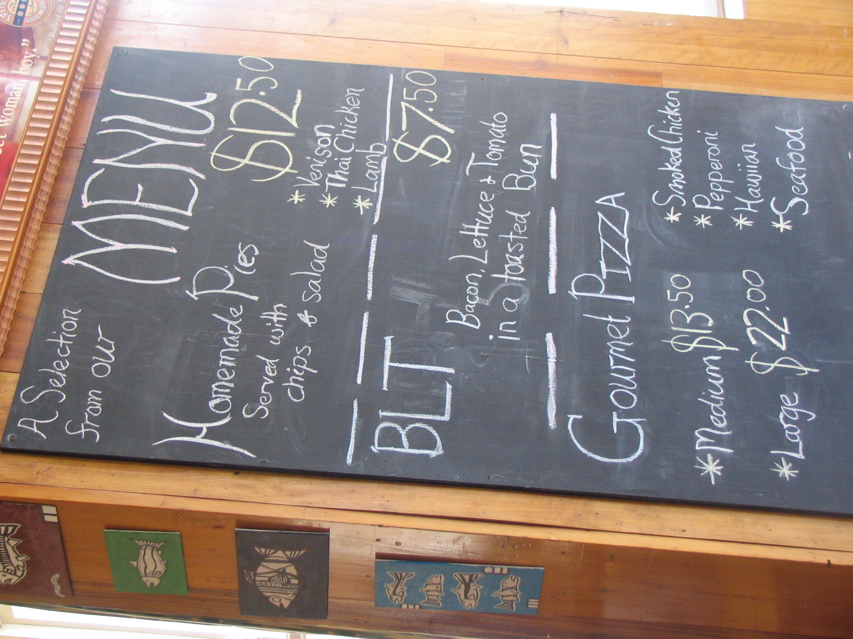 A Selection
from our
MENU
Homemade Pies $12.50
Served with
chips & salad
* Venison
* Thai Chicken
* Lamb
BLT $7.50
Bacon, Lettuce + Tomato
in a toasted Bun
Gourmet PIZZA
* Medium $13.50
* Large $22.00
* Smoked Chicken
* Pepperoni
* Hawiian
* Seafood
woman, boy."